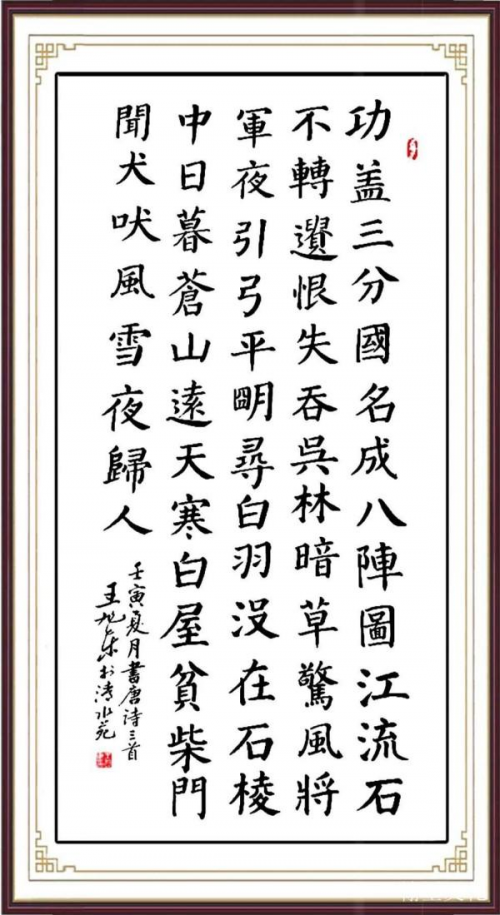 功盖三分國名成八陣圖江流石
不轉遺恨失吞吳林暗草驚風將
軍夜引弓平明尋白羽没在石棱
中日暮蒼山遠天寒白屋貧柴門
聞犬吠風雪夜歸人
壬寅夏月書唐诗三首
王旭书水苑